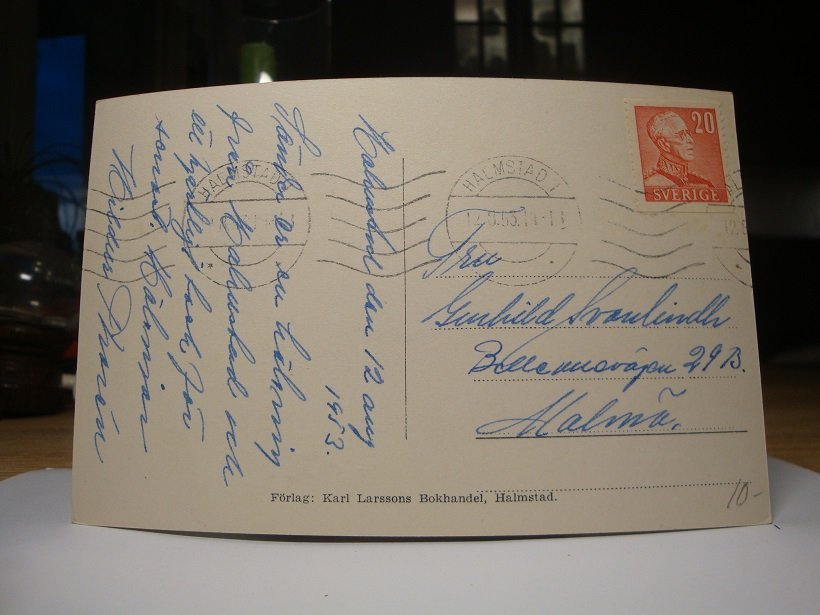 Halmstad den 12 aug
1953.
Sänder er en hälsning
från Halmstad och
ett hjärtligt tack för
senast. Hälsningar
Hildur Thorén
20
SVERIGE
HALMSTAD 1
HALMSTAD
Fru
Gunhild Svanlindh
Bellevuevägen 29 B.
Malmö.
Förlag: Karl Larssons Bokhandel, Halmstad.
10-